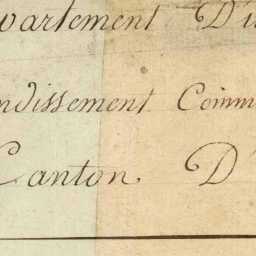 vartement D'i
ndissement Comm
Canton. D'